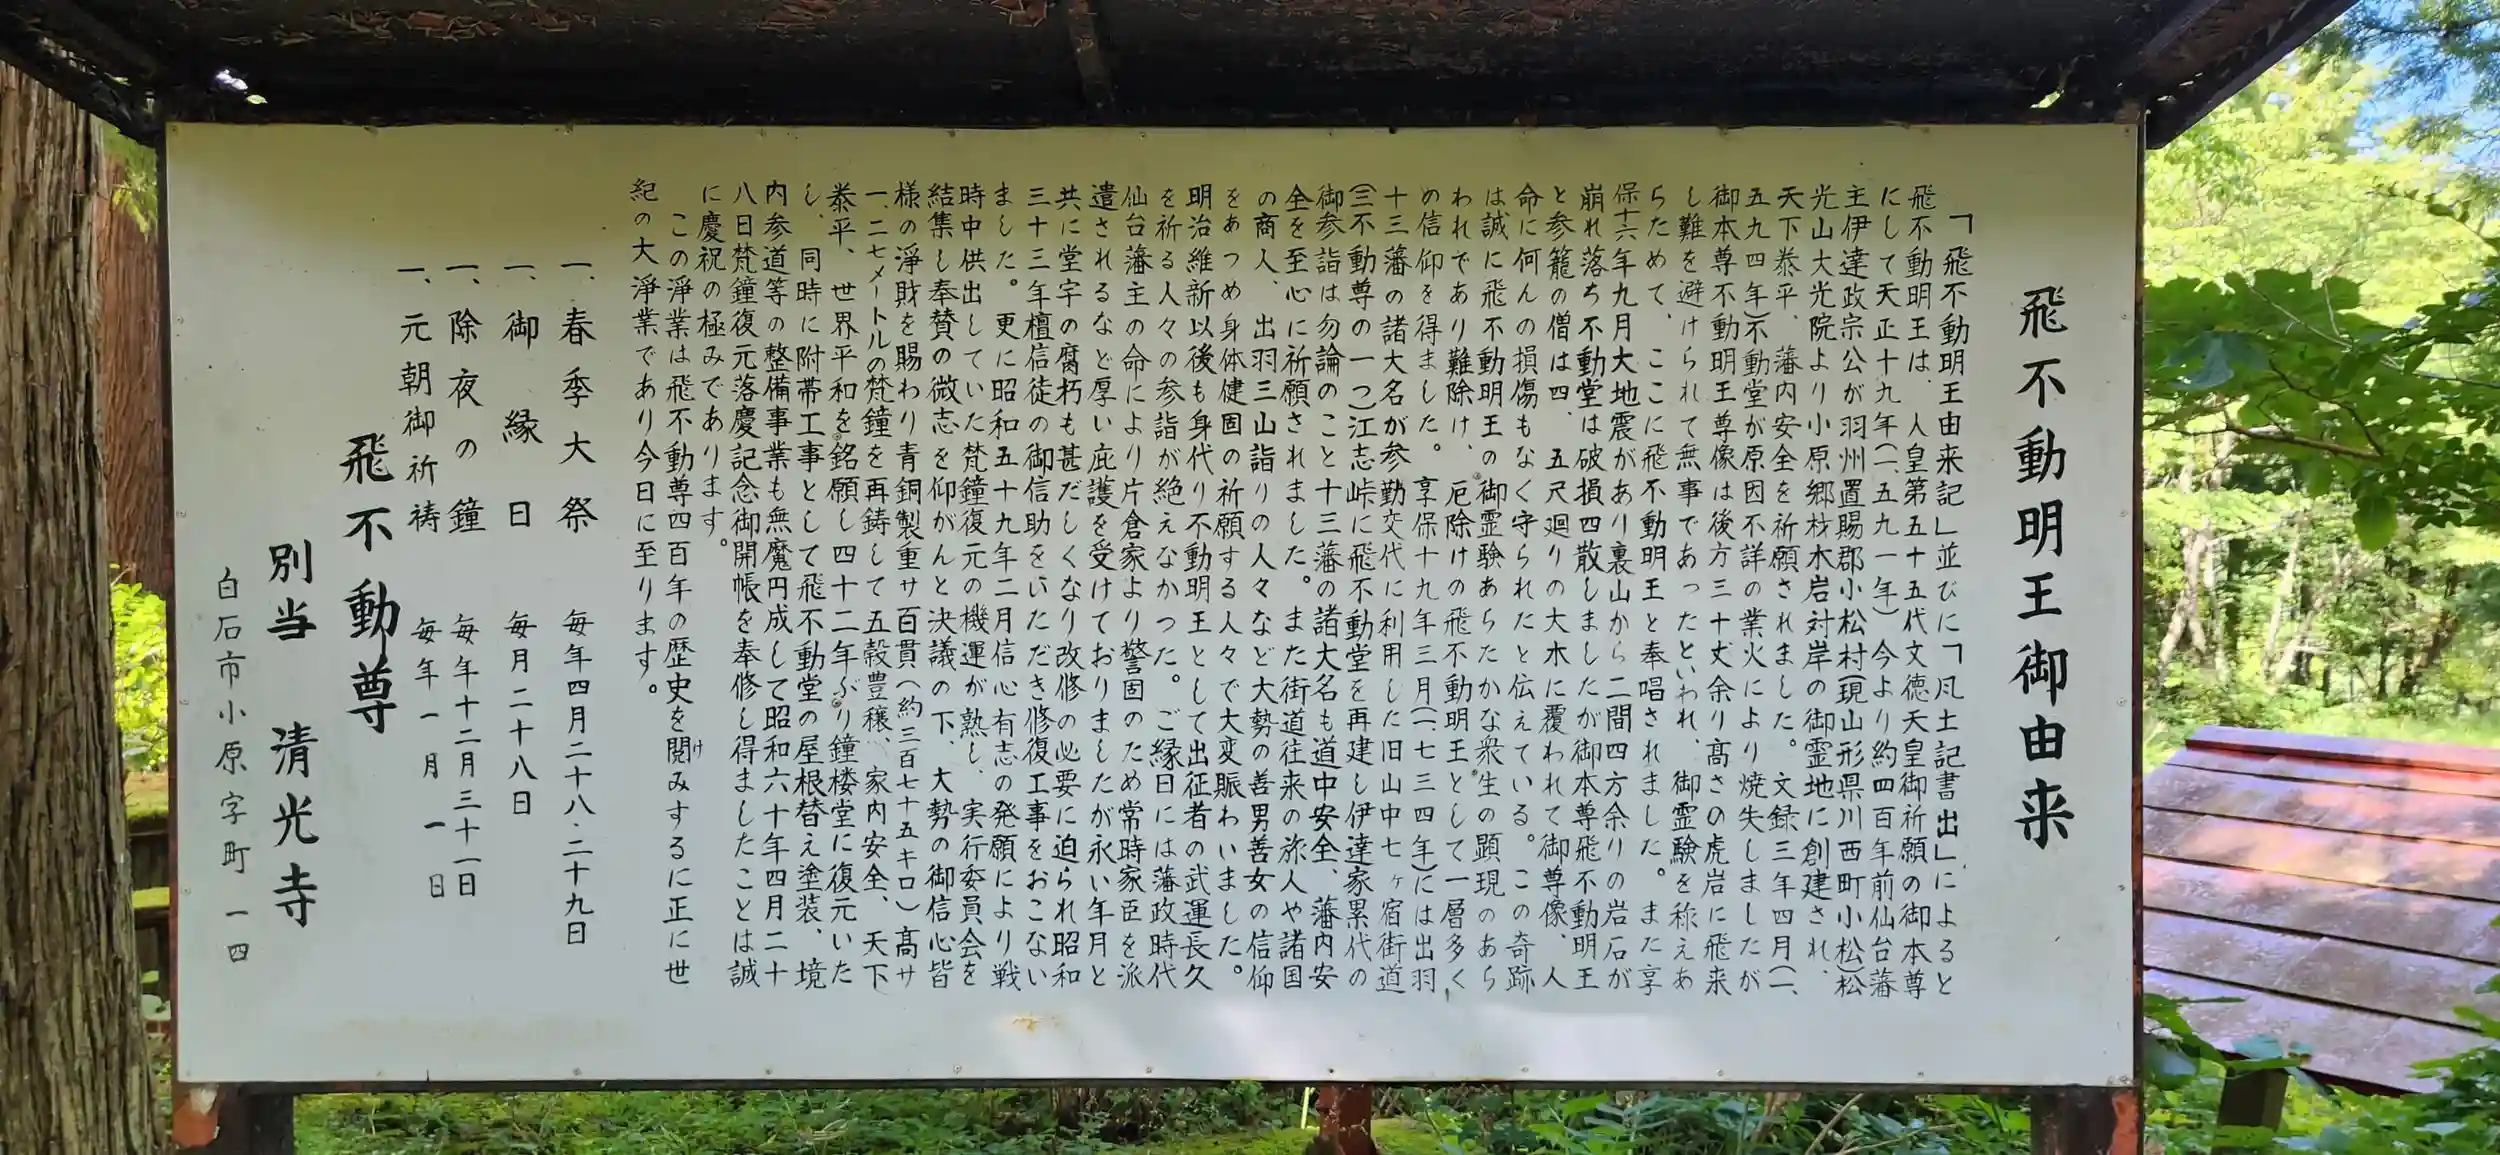 飛不動明王御由来
「飛不動明王由来記」並びに「風土記書出」によると
飛不動明王は、人皇第五十五代文徳天皇御祈願の御本尊
にして天正十九年(一、五九一年)今より約四百年前仙台藩
主伊達政宗公が羽州置賜郡小松村(現山形県川西町小松)松
光山大光院より小原郷材木岩対岸の御霊地に創建され、
天下泰平、藩内安全を祈願されました。文録三年四月(一、
五九四年)不動堂が原因不詳の業火により焼失しましたが
御本尊不動明王尊像は後方三十丈余り高さの虎岩に飛来
し難を避けられて無事であったといわれ、御霊験を称えあ
らためて、ここに飛不動明王と奉唱されました。また享
保十六年九月大地震があり裏山から二間四方余りの岩石が
崩れ落ち不動堂は破損四散しましたが御本尊飛不動明王
と参籠の僧は四、五尺廻りの大木に覆われて御尊像、人
命に何んの損傷もなく守られたと伝えている。この奇跡
は誠に飛不動明王の御霊験あらたかな衆生の顕現のあら
われであり難除け、厄除けの飛不動明王として一層多く
の信仰を得ました。享保十九年三月(一、七三四年)には出羽
十三藩の諸大名が参勤交代に利用した旧山中七ヶ宿街道
(三不動尊の一つ)江志峠に飛不動堂を再建し伊達家累代の
御参詣は勿論のこと十三藩の諸大名も道中安全、藩内安
全を至心に祈願されました。また街道往来の旅人や諸国
の商人、出羽三山詣りの人々など大勢の善男善女の信仰
をあつめ身体健固の祈願する人々で大変賑わいました。
明治維新以後も身代り不動明王として出征者の武運長久
を祈る人々の参詣が絶えなかった。ご縁日には藩政時代
仙台藩主の命により片倉家より警固のため常時家臣を派
遣されるなど厚い庇護を受けておりましたが永い年月と
共に堂宇の腐朽も甚だしくなり改修の必要に迫られ昭和
三十三年檀信徒の御信助をいただき修復工事をおこない
ました。更に昭和五十九年二月信心有志の発願により戦
時中供出していた梵鐘復元の機運が熟し、実行委員会を
結集し奉賛の微志を仰がんと決議の下、大勢の御信心皆
様の浄財を賜わり青銅製重サ百貫(約三百七十五キロ)高サ
一、二七メートルの梵鐘を再鋳して五穀豊穣、家内安全、天下
泰平、世界平和を銘願し四十二年ぶり鐘楼堂に復元いた
し、同時に附帯工事として飛不動堂の屋根替え塗装、境
内参道等の整備事業も無魔円成して昭和六十年四月二十
八日梵鐘復元落慶記念御開帳を奉修し得ましたことは誠
に慶祝の極みであります。
この浄業は飛不動尊四百年の歴史を閲みするに正に世
け
紀の大浄業であり今日に至ります。
一、春季大祭 毎年四月二十八・二十九日
一、御縁日 毎月二十八日
一、除夜の鐘 毎年十二月三十一日
一、元朝御祈祷 毎年一月一日
飛不動尊
別当 清光寺
白石市小原字町一四